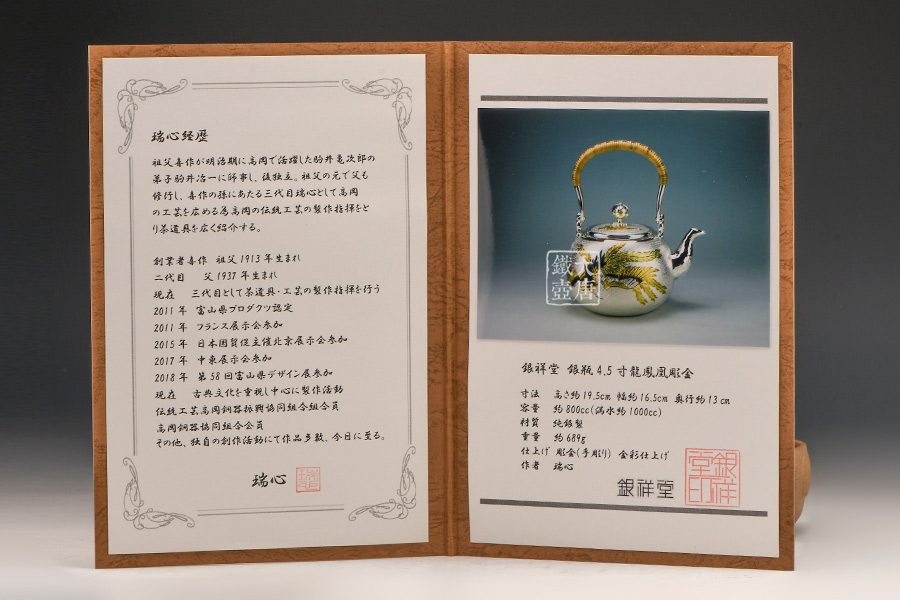 瑞心経歴
祖父喜作が明治期に高岡で活躍した駒井竜次郎の
弟子駒井冶一に師事し、後独立。祖父の元で父も
修行し、喜作の孫にあたる三代目瑞心として高岡
の工芸を広める為高岡の伝統工芸の製作指揮をと
り茶道具を広く紹介する。
創業者喜作 祖父1913年生まれ
二代目 父1937年生まれ
現在 三代目として茶道具・工芸の製作指揮を行う
2011年 富山県プロダクツ認定
2011年 フランス展示会参加
2015年 日本国貿促主催北京展示会参加
2017年 中東展示会参加
2018年 第58回富山県デザイン展参加
現在 古典文化を重視し中心に製作活動
伝統工芸高岡銅器振興協同組合組合員
高岡銅器協同組合会員
その他、独自の創作活動にて作品多数、今日に至る。
瑞心
大唐
鐵壺
銀祥堂 銀瓶4.5寸龍鳳凰彫金
寸法 高さ約19.5cm 幅約16.5cm 奥行約13cm
容量 約800cc(満水約1000cc)
材質 純銀製
重量 約689g
仕上げ 彫金(手彫り) 金彩仕上げ
作者 瑞心
銀祥堂
銀祥堂印